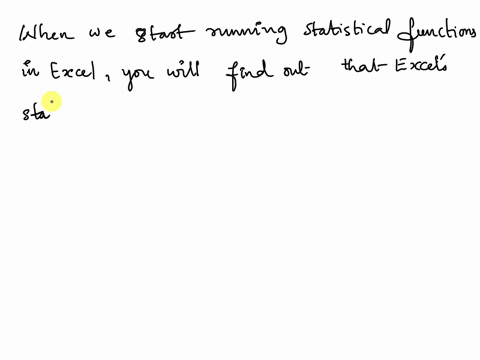 When we start running statistical functions
in Excel, you will find out that Excel's
sta